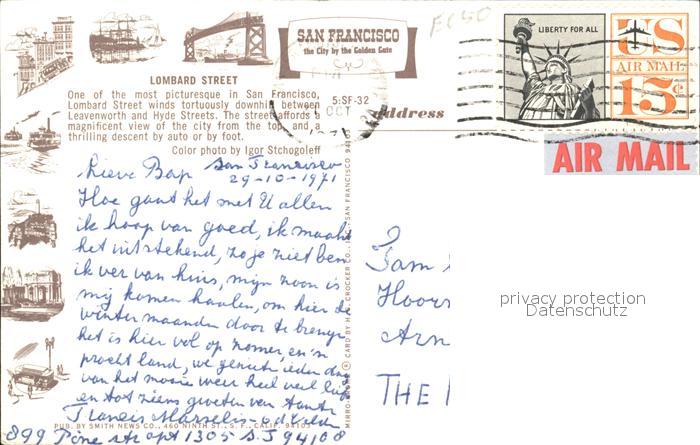 SAN FRANCISCO
the City by the Golden Gate
LIBERTY FOR ALL
US
AIR MAIL
15¢
AIR MAIL
LOMBARD STREET
One of the most picturesque in San Francisco,
Lombard Street winds tortuously downhill between
Leavenworth and Hyde Streets. The street affords a
magnificent view of the city from the top and a
thrilling descent by auto or by foot.
Color photo by Igor Stchogoleff
5:SF-32
OCT
address
San Francisco
29-10-1971
Lieve Bap
Hoe gaat het met U allen
ik hoop van goed, ik maak
het uitstekend, zo je ziet ben
ik ver van huis, mijn zoon is
mij komen haalen, om hier de
winter maanden door te brengen
het is hier vol op zomer, en 'n
pracht land, we genieten ieder dag
van het mooie weer heel veel
en tot ziens groeten van tante
Francis
PUB. BY SMITH NEWS CO., 460 NINTH ST., S. F., CALIF. 94103
899 Pine str apt 1305 S.F 94108
THE
privacy protection
Datenschutz